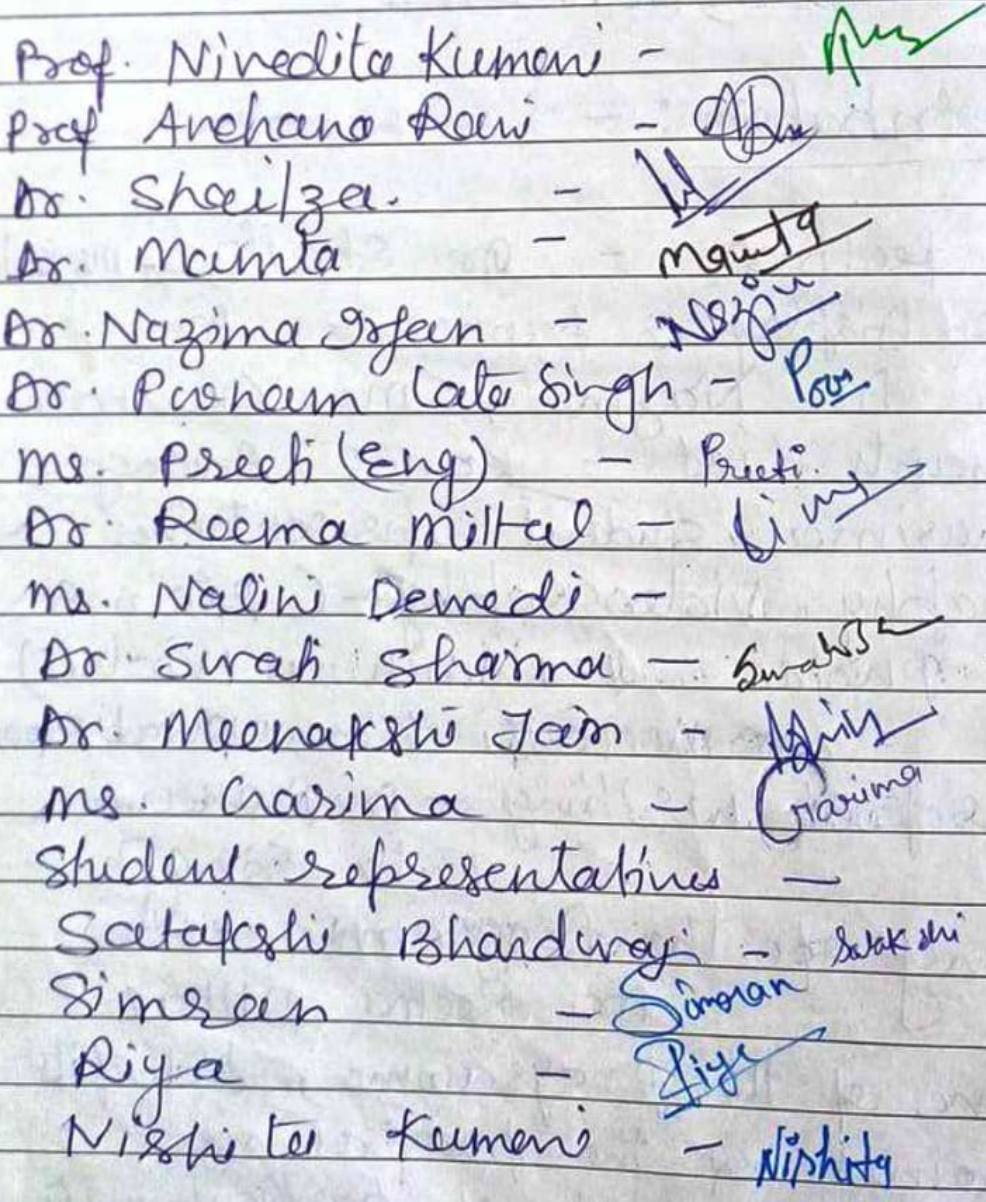 Prof. Nivedita Kumari -
Prof Archana Rani -
Dr. Shailza. -
Dr. Mamta - Mamta
Dr. Nazima Irfan - Nazim
Dr. Poonam Lata Singh - Poo
Ms. Preeti (Eng) - Preeti.
Dr. Reema Mittal -
Ms. Nalini Dewedi -
Dr. Swati Sharma - Swati
Dr. Meenakshi Jain -
Ms. Garima - Garima
Student representatives -
Satakshi Bhardwaj -
Simran - Simran
Riya - Riya
Nishita Kumari - Nishita